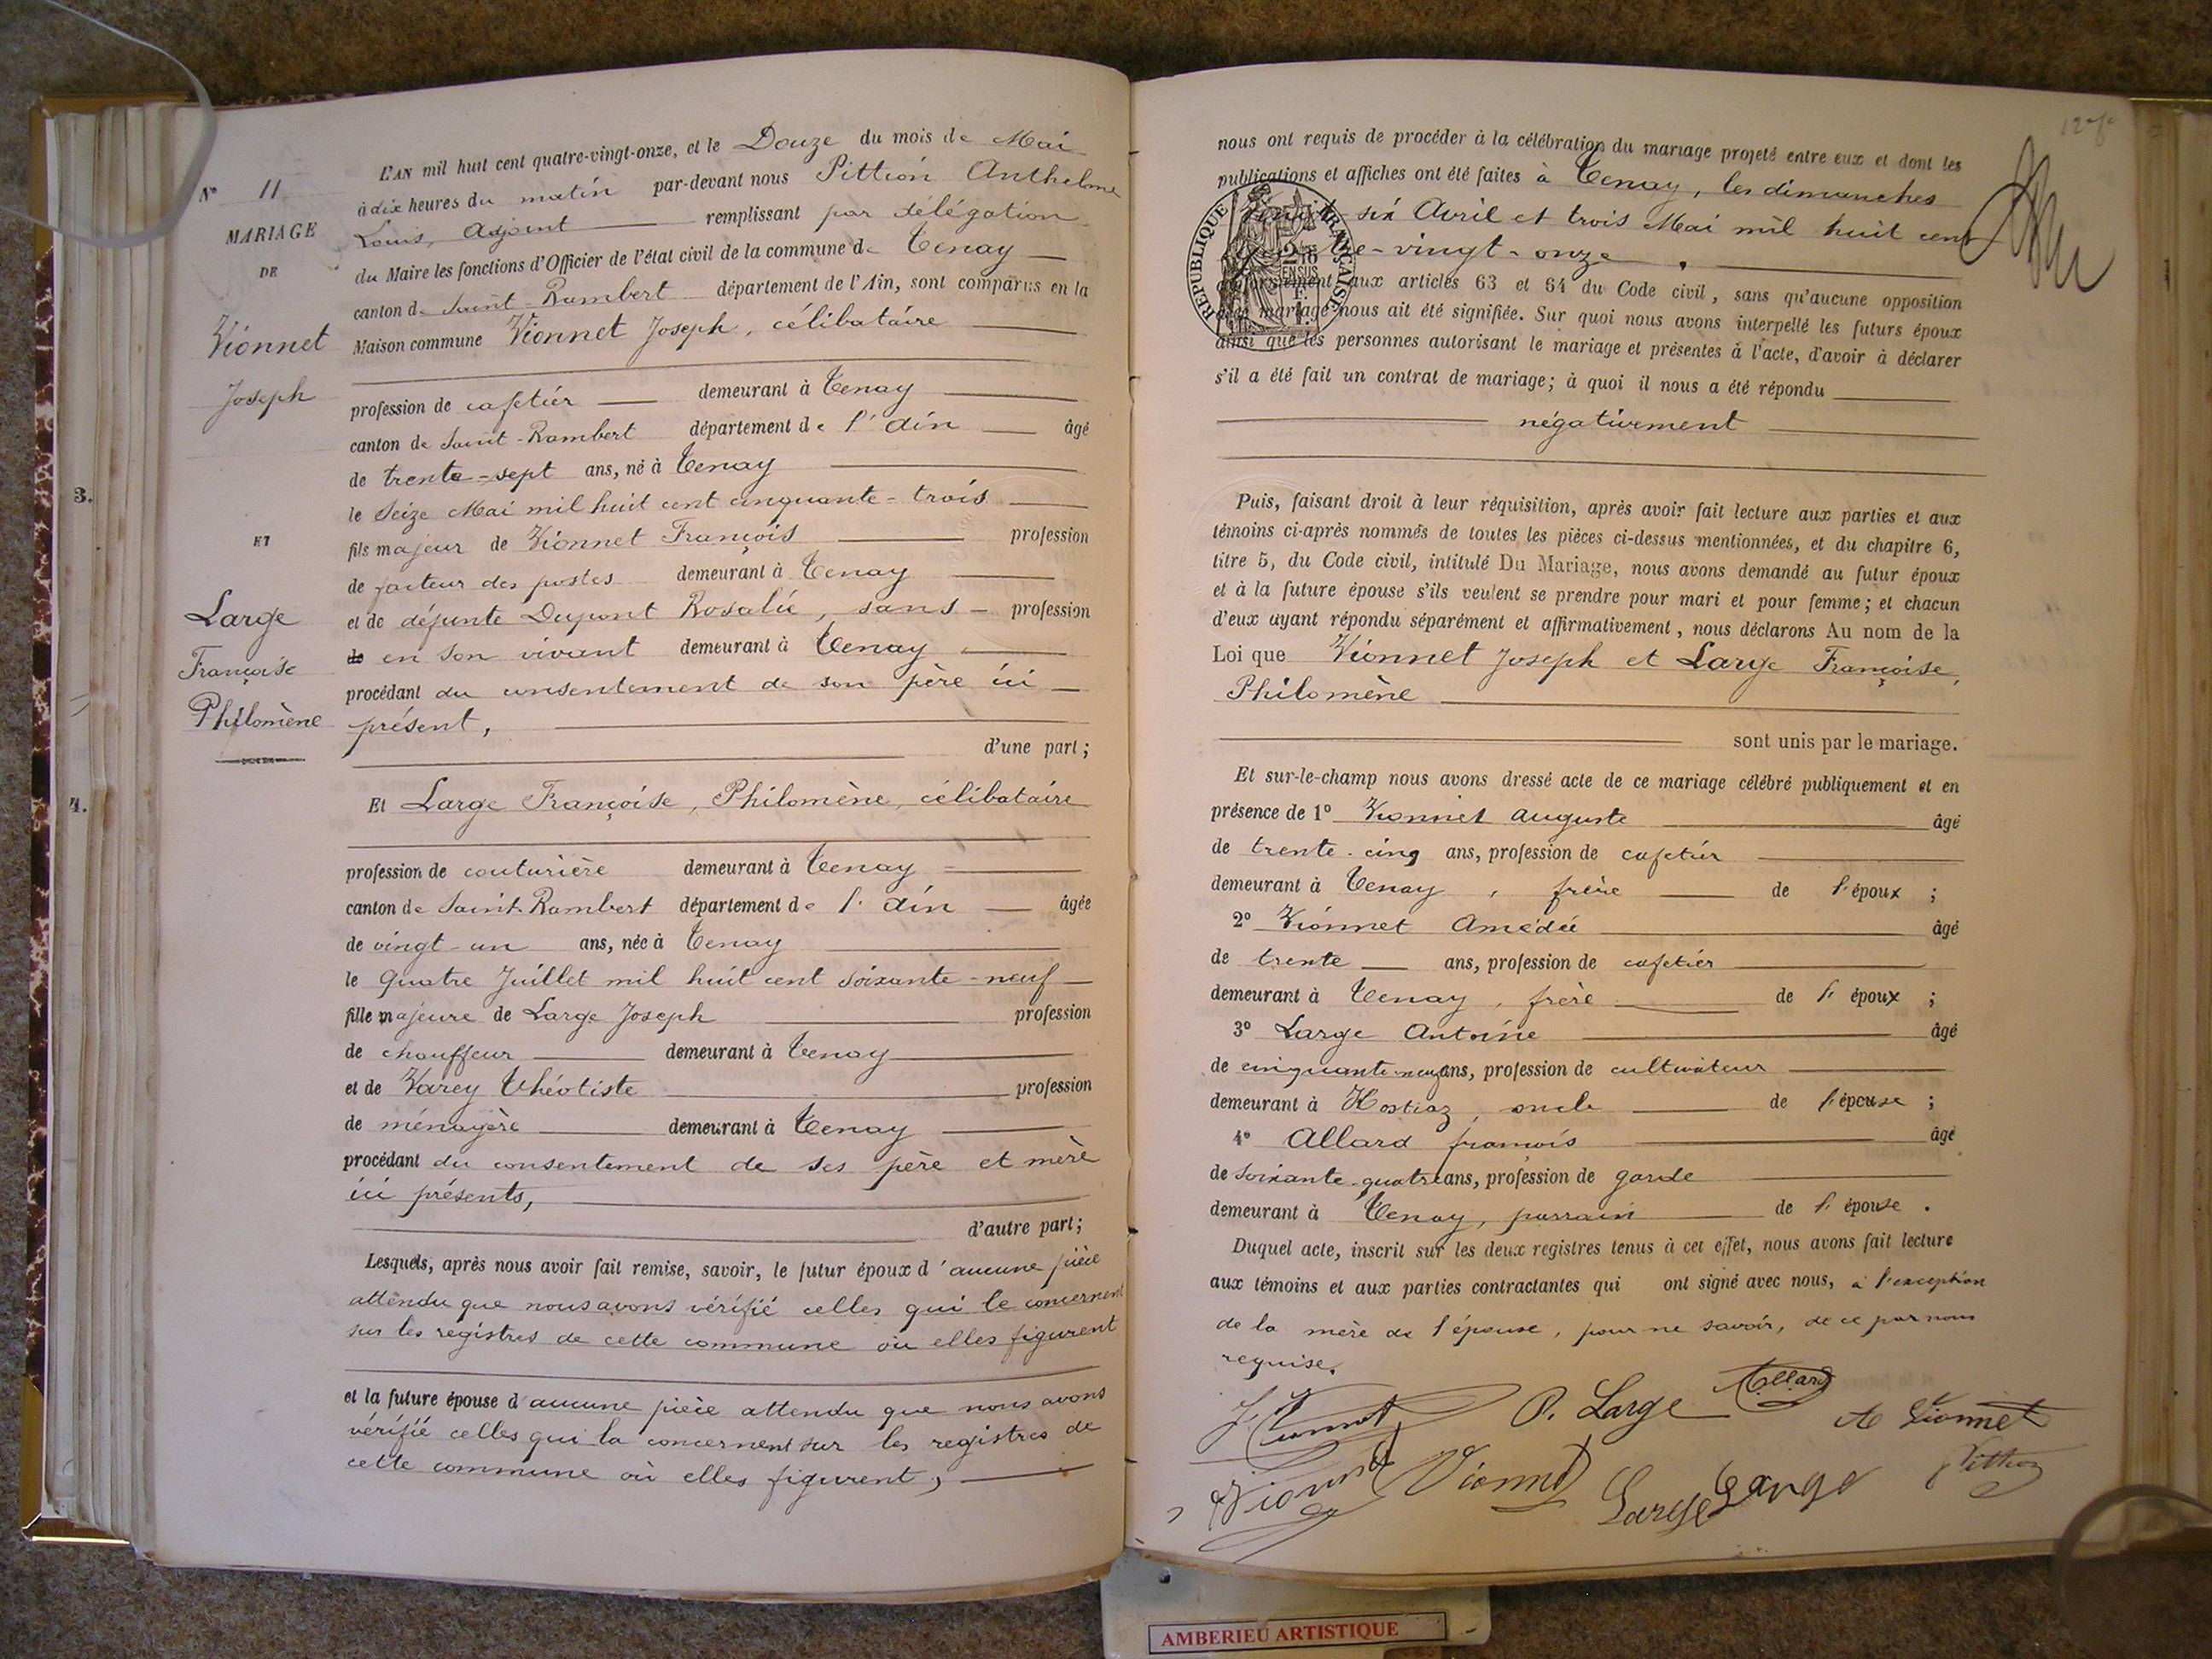 N° 11
MARIAGE
DE
Vionnet
Joseph
ET
Large
Françoise
Philomène
3.
4.
L'AN mil huit cent quatre-vingt-onze, et le Douze du mois de Mai
à dix heures du matin par-devant nous Pittion Anthelme
Louis, Adjoint remplissant par délégation
du Maire les fonctions d'Officier de l'état civil de la commune de Tenay
canton de Saint-Rambert département de l'Ain, sont comparus en la
Maison commune Vionnet Joseph, célibataire
profession de cafetier demeurant à Tenay
canton de Saint-Rambert département de l'Ain âgé
de trente-sept ans, né à Tenay
le Seize Mai mil huit cent cinquante-trois
fils majeur de Vionnet François profession
de facteur des postes demeurant à Tenay
et de défunte Dupont Rosalie, sans profession
de en son vivant demeurant à Tenay
procédant du consentement de son père ici
présent,
d'une part;
Et Large Françoise, Philomène, célibataire
profession de couturière demeurant à Tenay
canton de Saint-Rambert département de l'Ain âgée
de vingt-un ans, née à Tenay
le Quatre Juillet mil huit cent soixante-neuf
fille majeure de Large Joseph profession
de chauffeur demeurant à Tenay
et de Varey Théotiste profession
de ménagère demeurant à Tenay
procédant du consentement de ses père et mère
ici présents,
d'autre part;
Lesquels, après nous avoir fait remise, savoir, le futur époux d'aucune pièce
attendu que nous avons vérifié celles qui le concernent
sur les registres de cette commune où elles figurent
et la future épouse d'aucune pièce attendu que nous avons
vérifié celles qui la concernent sur les registres de
cette commune où elles figurent,
nous ont requis de procéder à la célébration du mariage projeté entre eux et dont les
publications et affiches ont été faites à Tenay, les dimanches
vingt-six Avril et trois Mai mil huit cent
quatre-vingt-onze.
RÉPUBLIQUE FRANÇAISE
conformément aux articles 63 et 64 du Code civil, sans qu'aucune opposition
à ce mariage nous ait été signifiée. Sur quoi nous avons interpellé les futurs époux
ainsi que les personnes autorisant le mariage et présentes à l'acte, d'avoir à déclarer
s'il a été fait un contrat de mariage; à quoi il nous a été répondu
négativement
Puis, faisant droit à leur réquisition, après avoir fait lecture aux parties et aux
témoins ci-après nommés de toutes les pièces ci-dessus mentionnées, et du chapitre 6,
titre 5, du Code civil, intitulé Du Mariage, nous avons demandé au futur époux
et à la future épouse s'ils veulent se prendre pour mari et pour femme; et chacun
d'eux ayant répondu séparément et affirmativement, nous déclarons Au nom de la
Loi que Vionnet Joseph et Large Françoise,
Philomène
sont unis par le mariage.
Et sur-le-champ nous avons dressé acte de ce mariage célébré publiquement et en
présence de 1° Vionnet Auguste âgé
de trente-cinq ans, profession de cafetier
demeurant à Tenay, frère de l'époux;
2° Vionnet Amédée âgé
de trente ans, profession de cafetier
demeurant à Tenay, frère de l'époux;
3° Large Antoine âgé
de cinquante-neuf ans, profession de cultivateur
demeurant à Hostiaz, oncle de l'épouse;
4° Allard françois âgé
de soixante-quatre ans, profession de garde
demeurant à Tenay, parrain de l'épouse.
Duquel acte, inscrit sur les deux registres tenus à cet effet, nous avons fait lecture
aux témoins et aux parties contractantes qui ont signé avec nous, à l'exception
de la mère de l'épouse, pour ne savoir, de ce par nous
requise.
J. Vionnet P. Large Allard A Vionnet
Vionnet Vionnet Large Large Pittion
AMBERIEU ARTISTIQUE